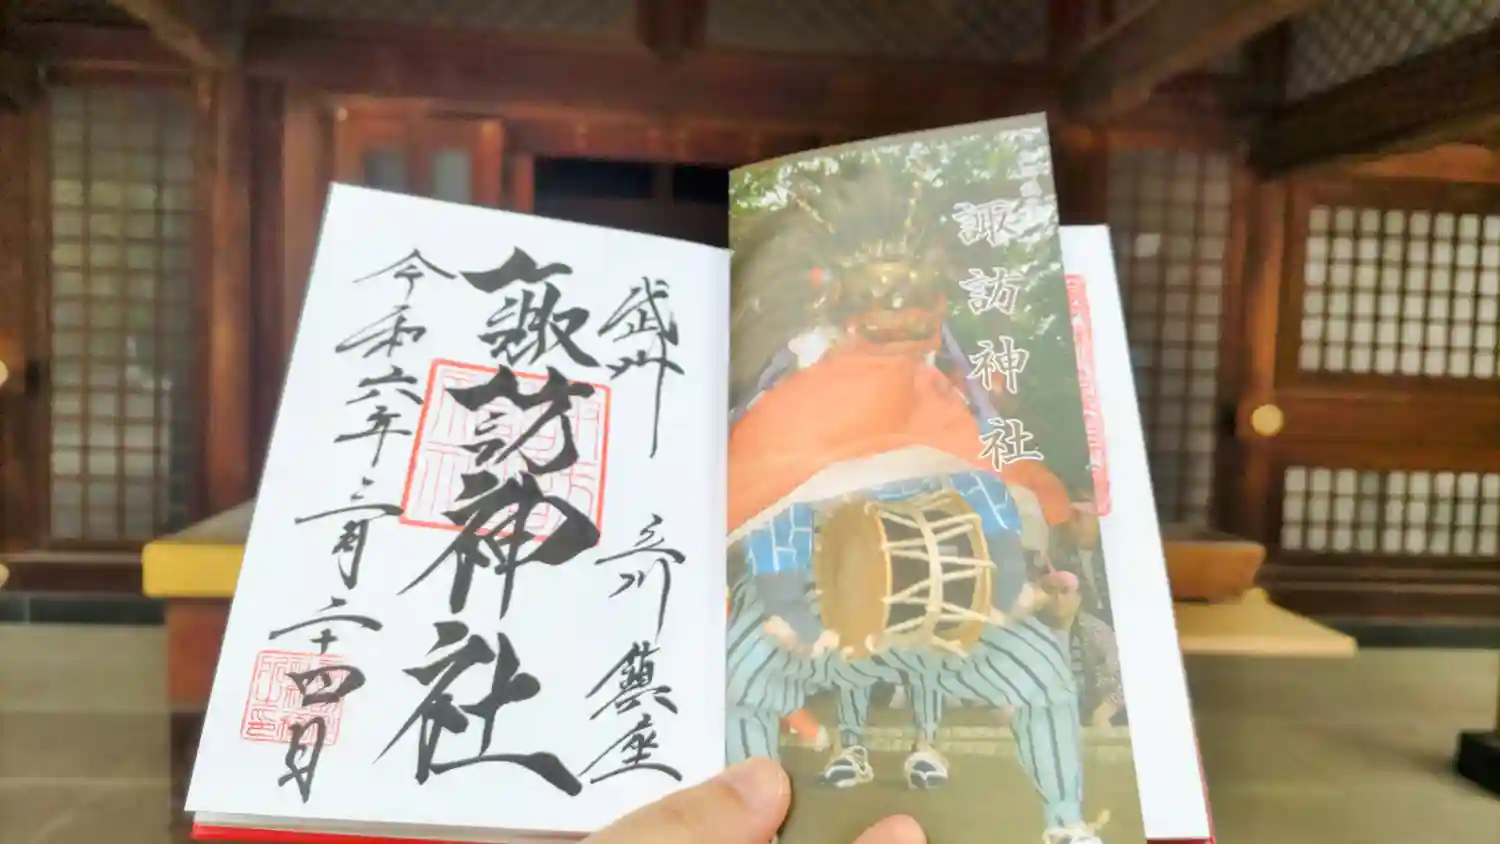 武州 立川 鎮座
諏訪神社
令和六年 三月 二十四日
諏訪神社